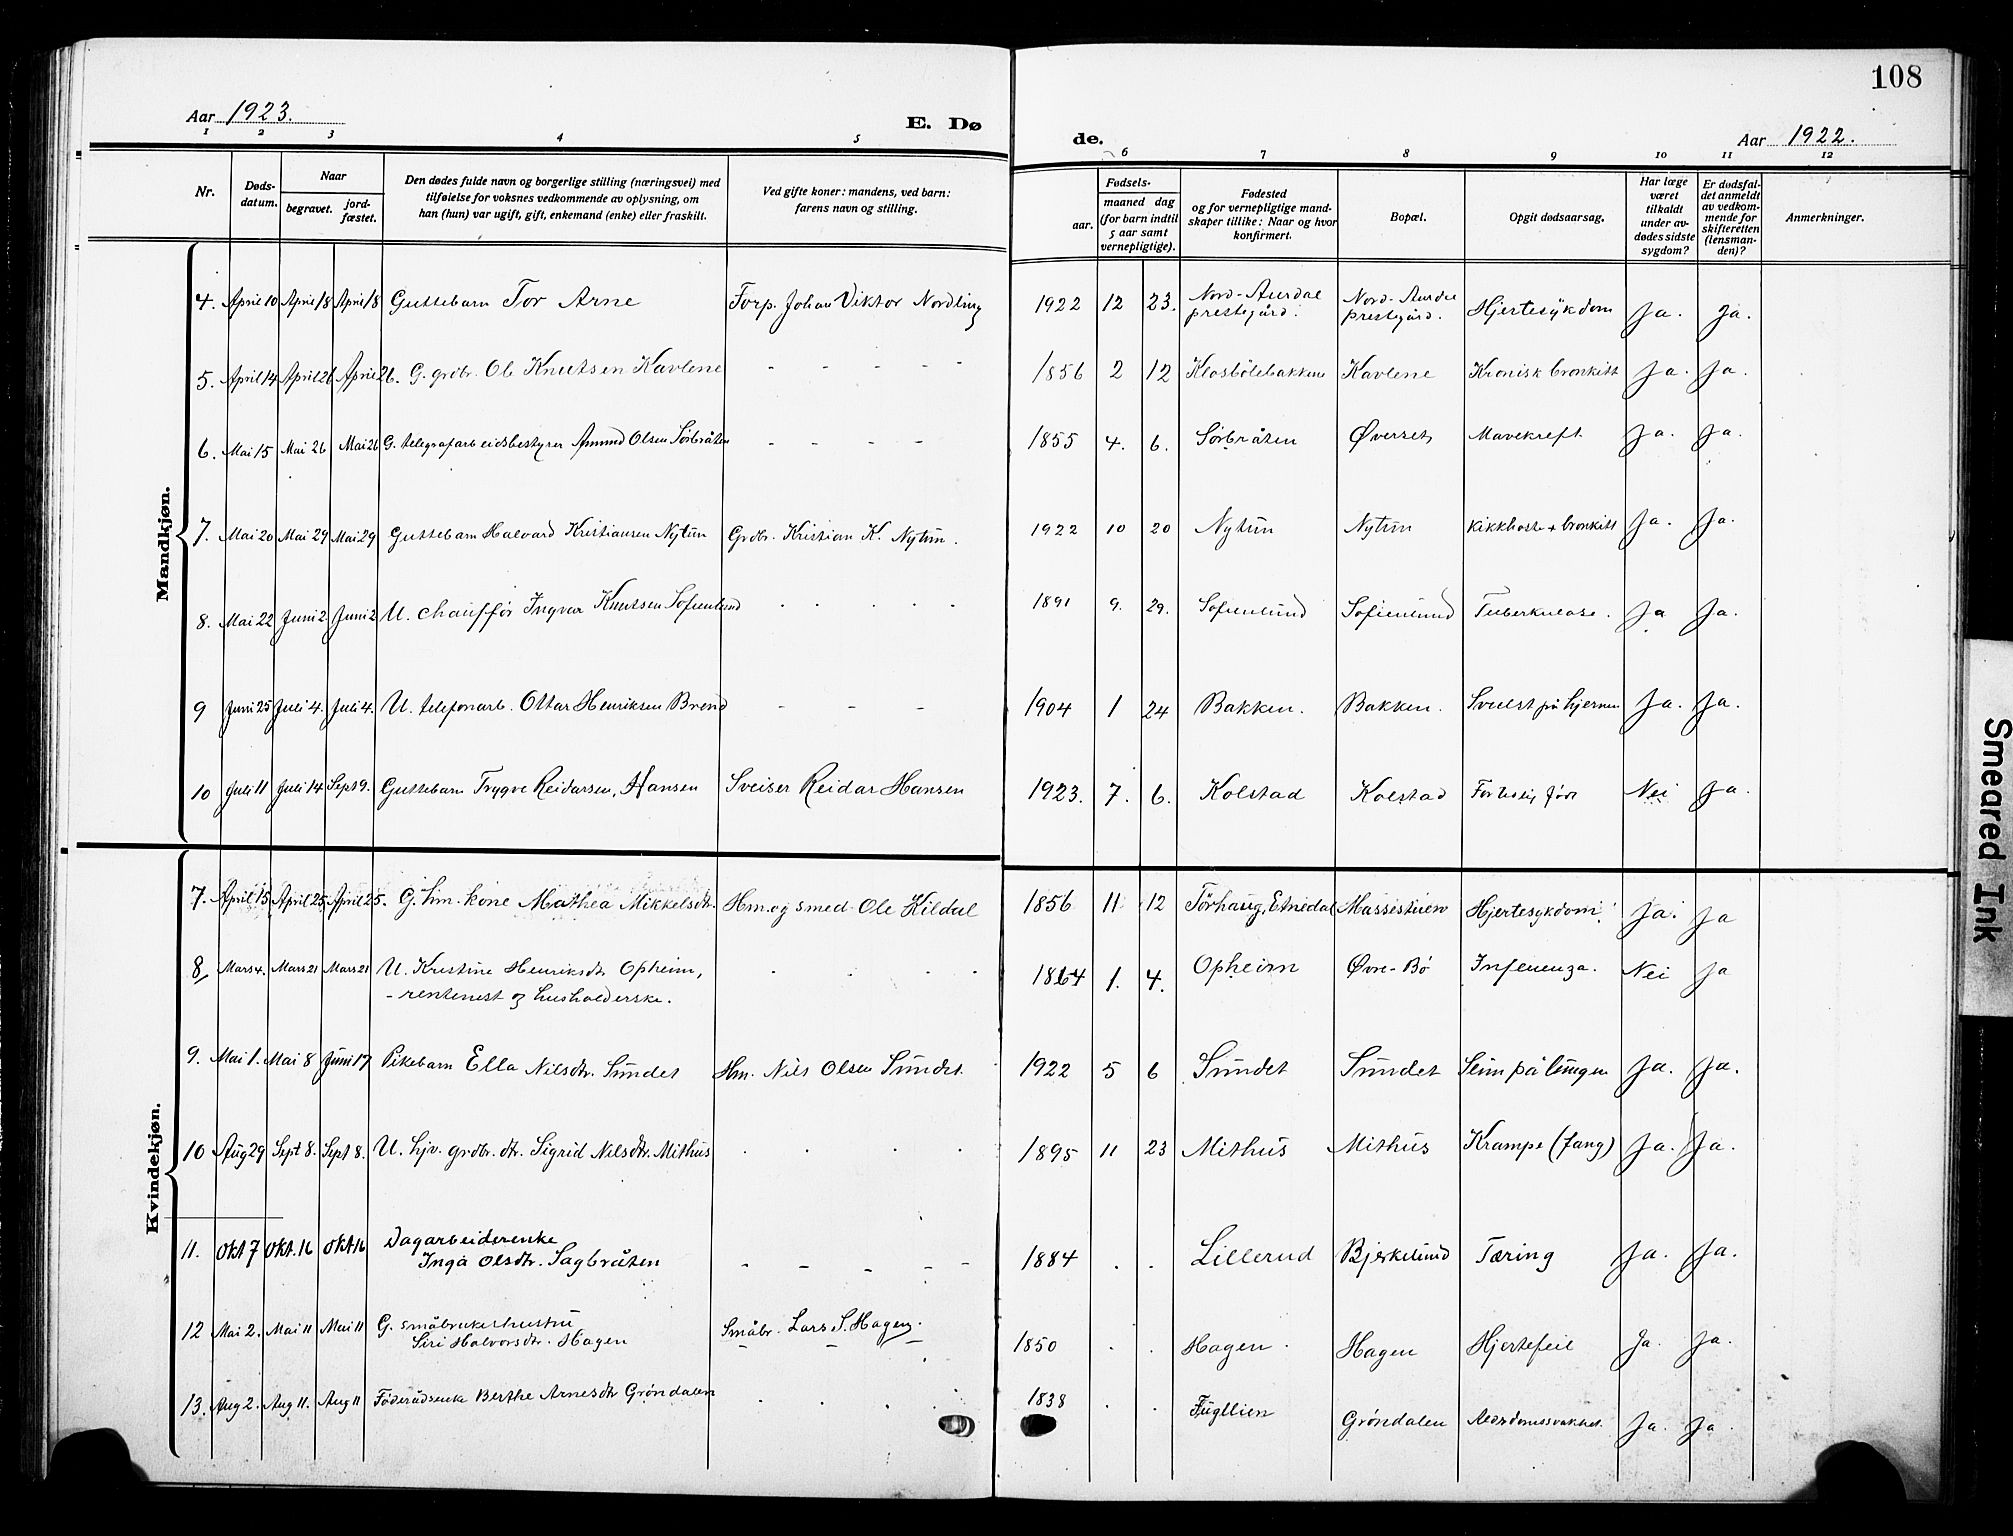 108
Aar 1923.
E. Døde.
Aar 1922.
1 2 3 4 5 6 7 8 9 10 11 12
Nr.
Døds-
datum.
Naar
begravet.
jord-
fæstet.
Den dødes fulde navn og borgerlige stilling (næringsvei) med
tilføielse for voksnes vedkommende av oplysning, om
han (hun) var ugift, gift, enkemand (enke) eller fraskilt.
Ved gifte koner: mandens, ved barn:
farens navn og stilling.
Fødsels-
aar.
maaned dag
(for barn indtil
5 aar samt
vernepligtige).
Fødested
og for vernepligtige mand-
skaper tillike: Naar og hvor
konfirmert.
Bopæl.
Opgit dødsaarsag.
Har læge
været
tilkaldt
under av-
dødes sidste
sygdom?
Er dødsfal-
det anmeldt
av vedkom-
mende for
skifteretten
(lensman-
den)?
Anmerkninger.
Mandkjøn.
4. April 10 April 18 April 18 Guttebarn Tor Arne Forp. Johan Viktor Nordling 1922 12 23. Nord-Aurdal prestegård. Nord-Aurdal prestegård. Hjertesykdom Ja. Ja.
5. April 14 April 26 April 26. G. grdbr. Ole Knutsen Kavlene - - - - 1856 2 12 Klosbølebakken Kavlene Kronisk bronkitt Ja. Ja.
6. Mai 15 Mai 26 Mai 26 G. telegrafarbeidsbestyrer Amund Olsen Sørbråten - - - - 1855 4. 6. Sørbråten Øverset Mavekreft Ja. Ja.
7. Mai 20 Mai 29 Mai 29 Guttebarn Halvard Kristiansen Nytun Grdbr. Kristian K. Nytun. 1922 10 20 Nytun Nytun Kikkhoste + bronkitt Ja. Ja.
8. Mai 22 Juni 2 Juni 2 U. chauffør Ingvar Knutsen Sofienlund 1891 9. 29. Sofienlund Sofienlund Tuberkulose. Ja Ja.
9 Juni 25 Juli 4. Juli 4. U. telefonarb. Ottar Henriksen Brend - - - 1904 1 24 Bakken. Bakken. Svulst på hjernen Ja. Ja.
10 Juli 11 Juli 14 Sept 9. Guttebarn Trygve Reidarsen, Hansen Sveiser Reidar Hansen 1923. 7. 6. Kolstad Kolstad For tidlig født Nei Ja.
Kvindekjøn.
7. April 15 April 25 April 25. G. hm. kone Mathea Mikkelsdtr. Hm. og smed Ole Kildal 1856 11 12 Tørhaug, Etnedal Massistuen Hjertesykdom Ja. Ja
8 Mars 4. Mars 21 Mars 21 U. Kristine Henriksdtr Opheim,
- rentenist og husholderske. 1864 1. 4. Opheim Øvre-Bø Influenza. Nei Ja
9. Mai 1. Mai 8 Juni 17 Pikebarn Ella Nilsdtr. Sundet Hm. Nils Olsen Sundet. 1922 5 6 Sundet Sundet Slim på lungen Ja. Ja.
10 Aug 29 Sept 8. Sept 8. U. hjv. grdbr. dtr. Sigrid Nilsdtr. Mithus 1895 11 23 Mithus Mithus Krampe (fang) Ja. Ja.
11. Okt 7 Okt. 16 Okt 16 Dagarbeiderenke
Inga Olsdtr. Sagbråten - - - - - 1884 Lillerud Bjerkelund Tæring Ja. Ja.
12 Mai 2. Mai 11 Mai 11 G. småbrukerhustru
Siri Halvorsdtr. Hagen Småbr. Lars S. Hagen. 1850 Hagen. Hagen Hjertefeil Ja. Ja.
13. Aug 2. Aug 11. Aug 11 Føderådsenke Berthe Arnesdtr Grøndalen 1838 Fugllien Grøndalen Alderdomssvakhet Ja. Ja.
Smeared Ink